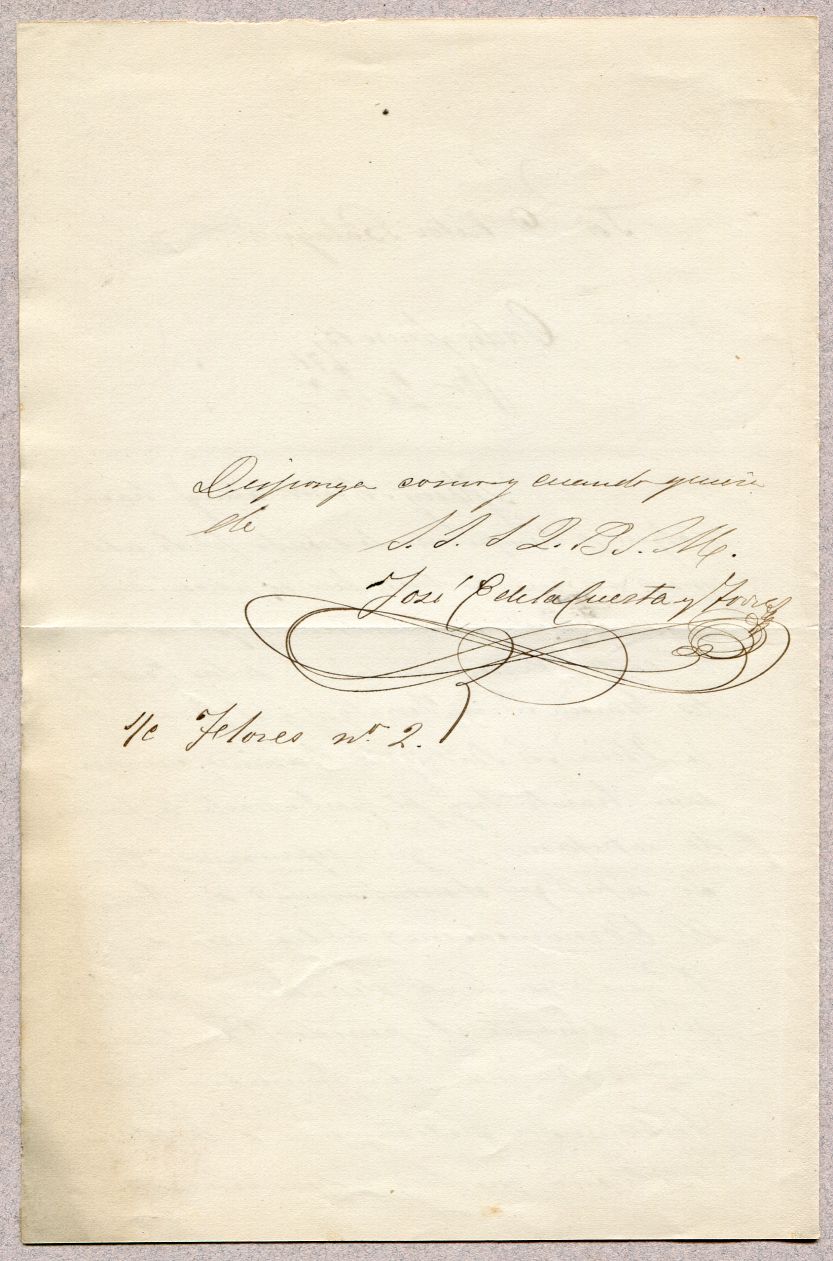 Disponga como y cuando quiera
de
S. S. S Q. B. S. M.
José E de la Cuesta y Torres
s/c Flores nº 2.